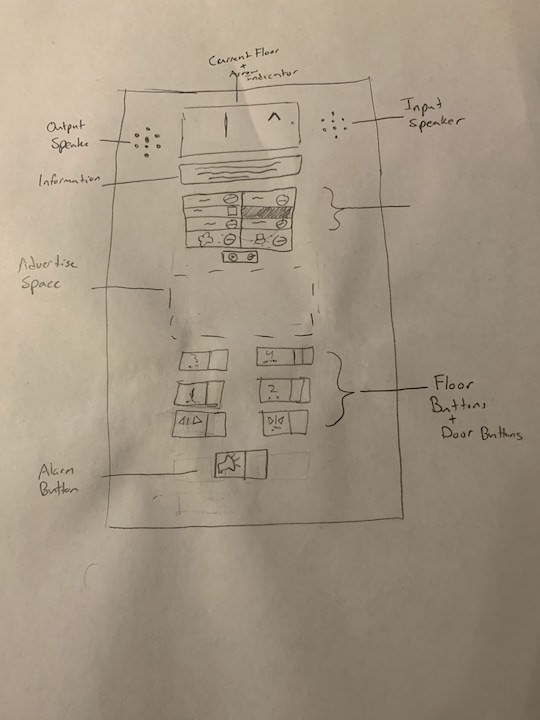 Current Floor
+
Arrow
Indicator
1 ^
Output
Speake
Input
Speaker
Information
Advertise
Space
3 4
1 2
Floor
Buttons
+
Door Buttons
Alarm
Button